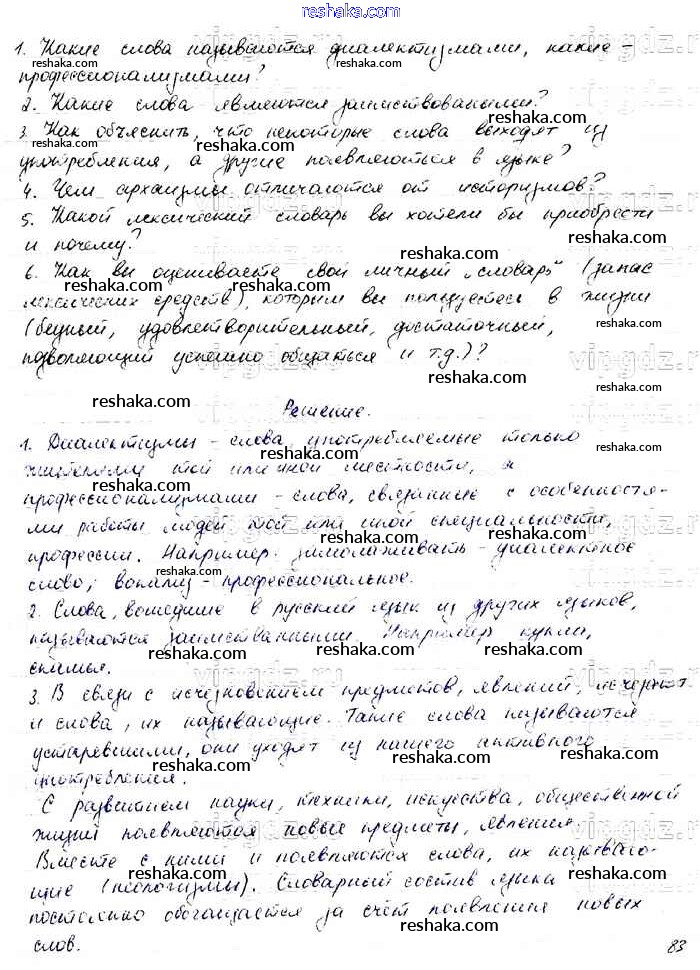 reshaka.com
1. Какие слова называются диалектизмами, какие -
профессионализмами?
2. Какие слова являются заимствоваными?
3. Как объяснить, что некоторые слова выходят из
употребления, а другие появляются в языке?
4. Чем архаизмы отличаются от историзмов?
5. Какой лексический словарь вы хотели бы приобрести
и почему?
6. Как вы оцениваете свой личный „словарь" (запас
лексических средств), которым вы пользуетесь в жизни
(бедный, удовлетворительный, достаточный,
позволяющий успешно общаться и т.д.)?
Решение.
1. Диалектизмы - слова, употребляемые только
жителями той или иной местности, а
профессионализмами - слова, связанные с особенностя-
ми работы людей той или иной специальности,
профессии. Например: замолаживать - диалектное
слово; вокализ - профессиональное.
2. Слова, вошедшие в русский язык из других языков,
называются заимственными. Например: кукла,
скамья.
3. В связи с исчезновением предметов, явлений, исчезают
и слова, их называющие. Такие слова называются
устаревшими, они уходят из нашего активного
употребления.
С развитием науки, техники, искусства, общественной
жизни появляются новые предметы, явления.
Вместе с ними и появляются слова, их называю-
щие (неологизмы). Словарный состав языка
постоянно обогащается за счёт появления новых
слов.
83